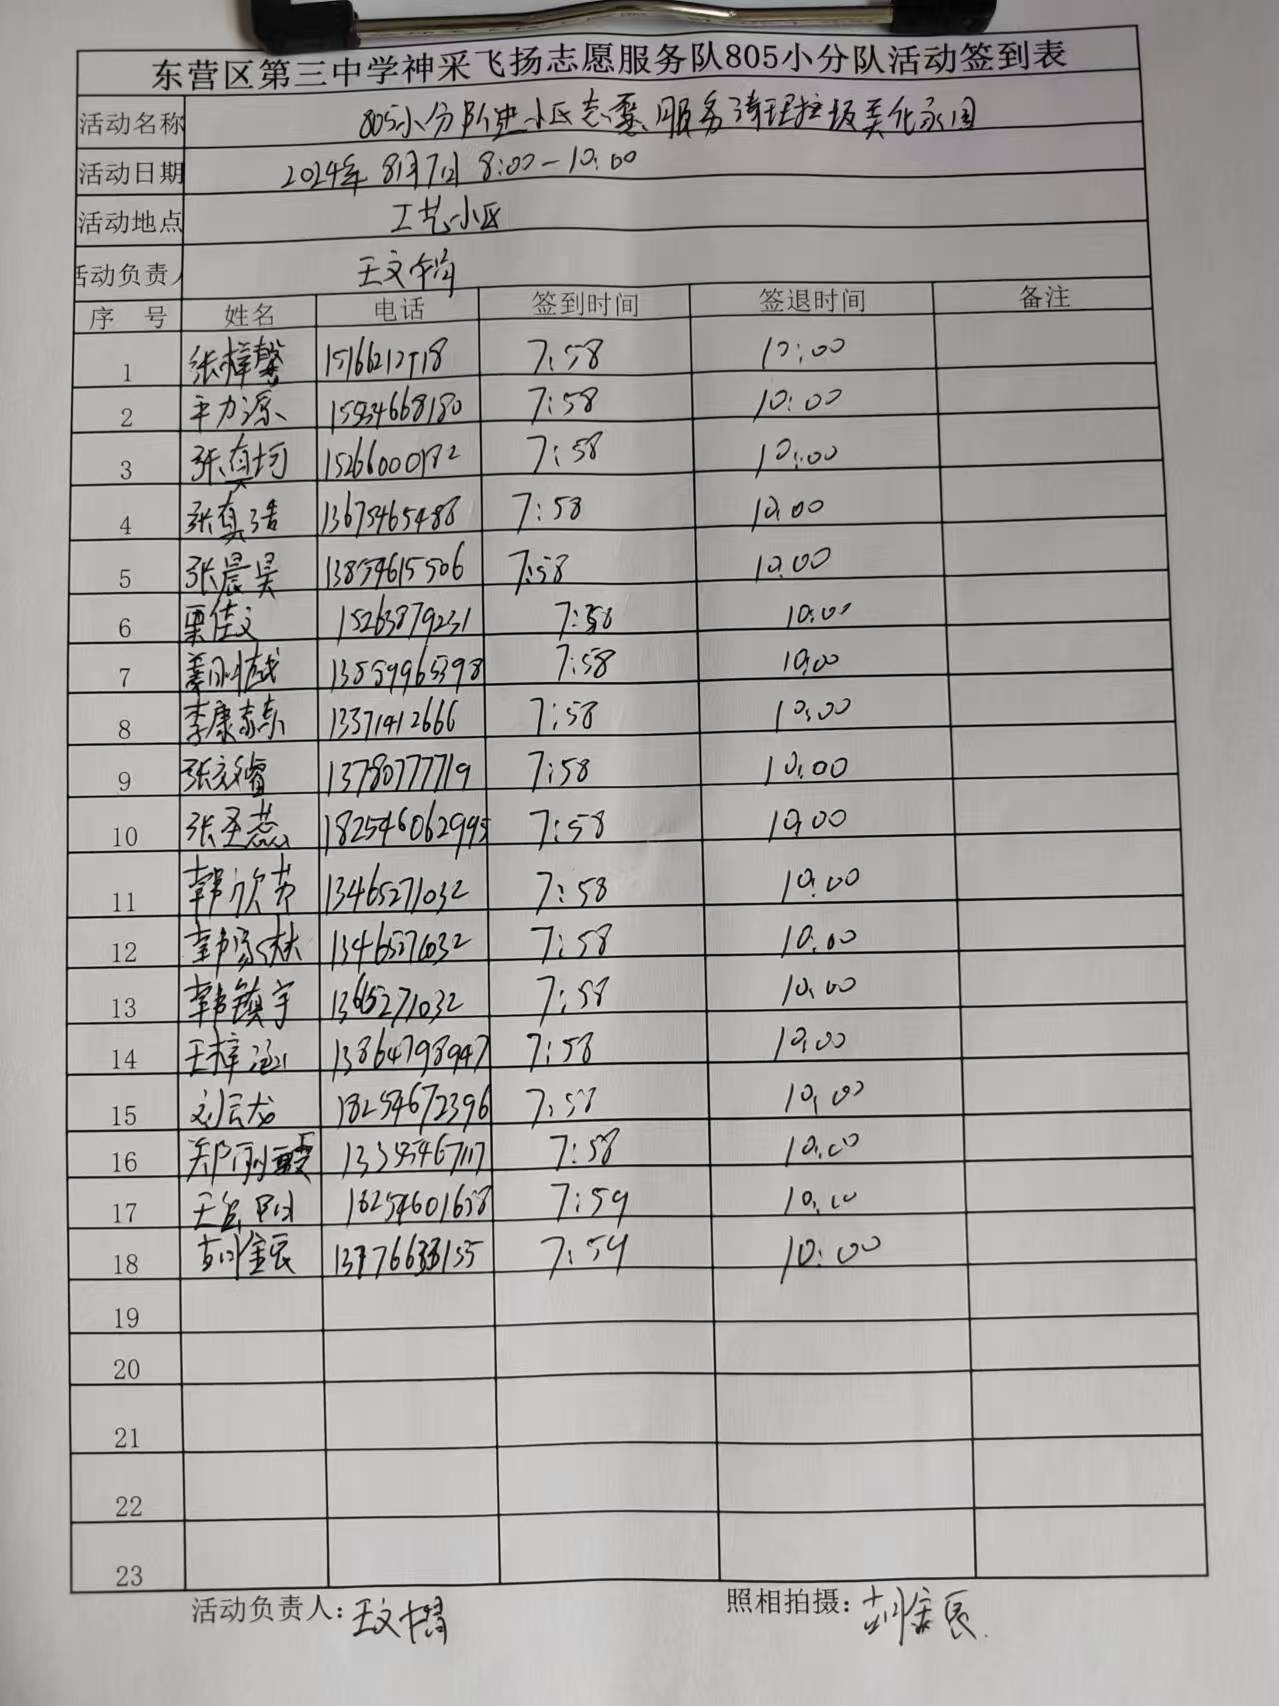 东营区第三中学神采飞扬志愿服务队805小分队活动签到表
活动名称 805小分队进小区志愿服务清理垃圾美化家园
活动日期 2024年8月7日 8:00-10:00
活动地点 工艺小区
活动负责人 王文
序 号 姓名 电话 签到时间 签退时间 备注
1 张梓馨 7:58 10:00
2 15934668180 7:58 10:00
3 张真均 15266000182 7:58 10:00
4 张真浩 13675465488 7:58 10:00
5 张晨昊 13854615506 7:58 10:00
6 栗佳文 15263879231 7:58 10:00
7 13859965398 7:58 10:00
8 李康 13371412666 7:58 10:00
9 张 睿 13780777719 7:58 10:00
10 张圣蕊 182546062995 7:58 10:00
11 韩欣芮 13465271032 7:58 10:00
12 韩 7:58 10:00
13 韩镇宇 1365271032 7:58 10:00
14 王梓涵 13864798947 7:58 10:00
15 刘云龙 18254672396 7:58 10:00
16 郑 7:58 10:00
17 王 18254601658 7:59 10:00
18 7:59 10:00
19
20
21
22
23
活动负责人：王文 照相拍摄：